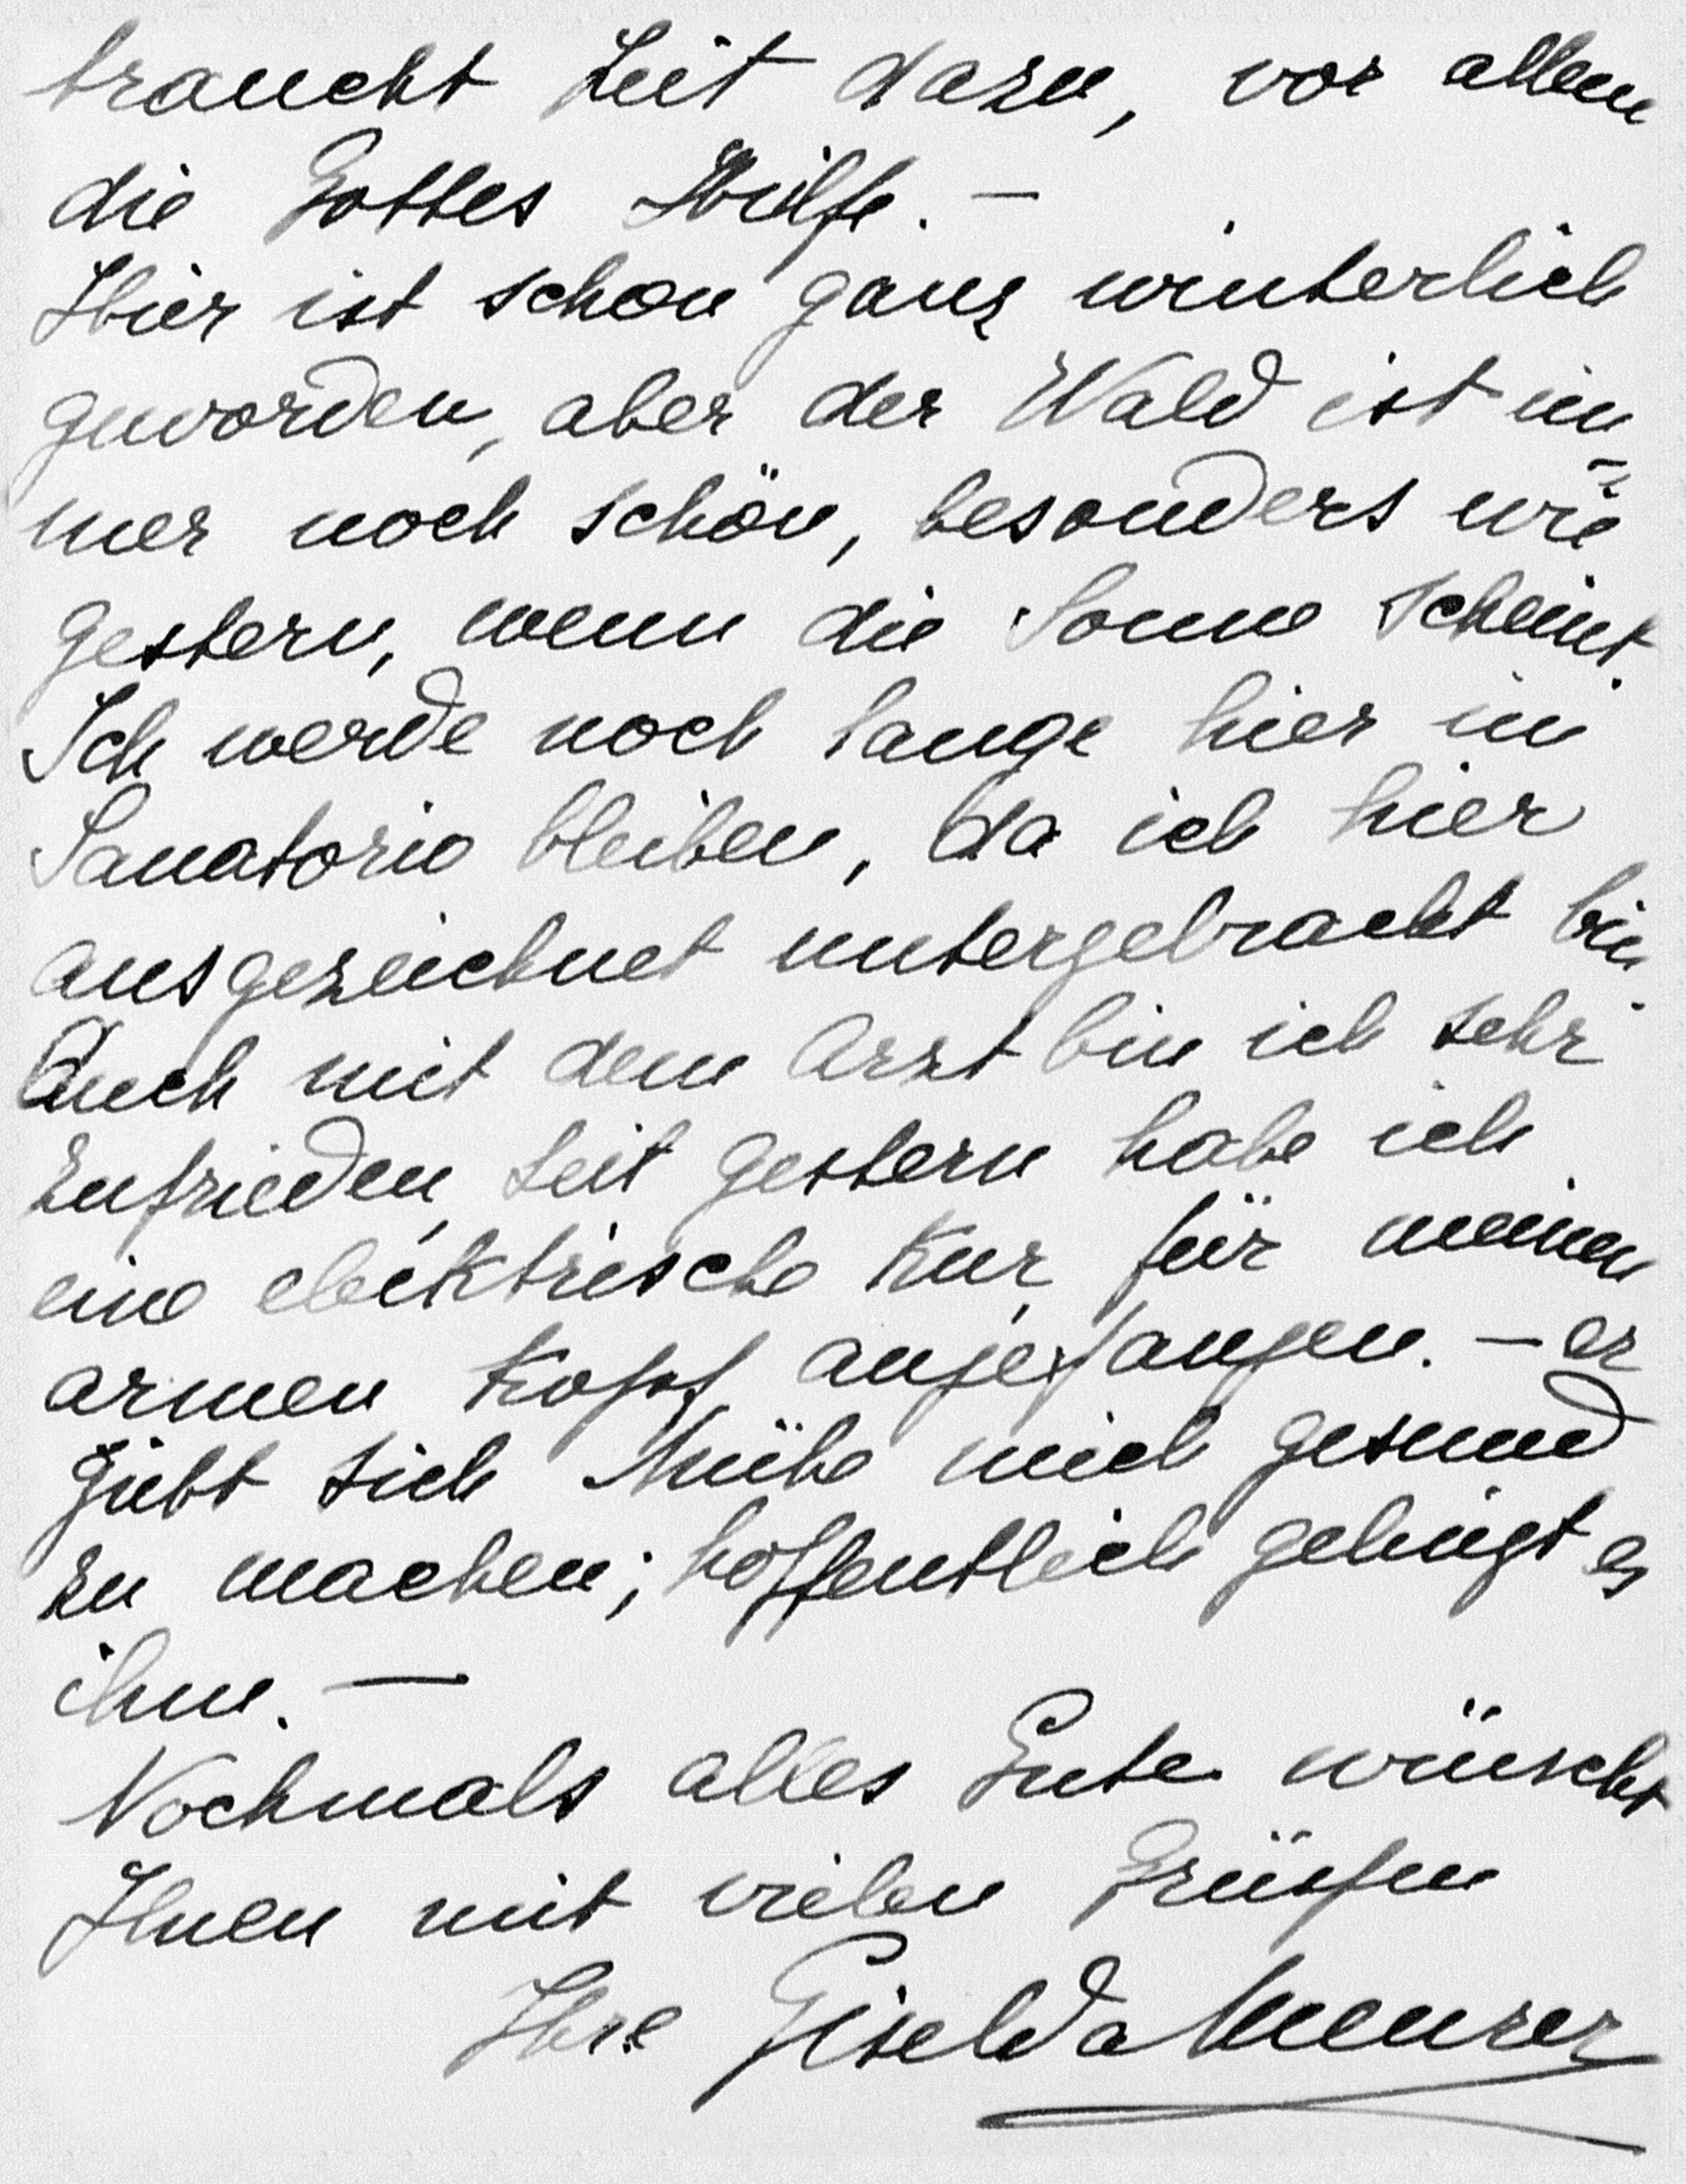 braucht Zeit dazu, vor allem
die Gottes Hilfe. —
Hier ist schon ganz winterlich
geworden, aber der Wald ist im=
mer noch schön, besonders wie
gestern, wenn die Sonne scheint.
Ich werde noch lange hier im
Sanatorio bleiben, da ich hier
ausgezeichnet untergebracht bin.
Auch mit dem Arzt bin ich sehr
zufrieden, seit gestern habe ich
eine elecktrische Kur, für meinen
armen Kopf, angefangen. — er
giebt sich Mühe mich gesund
zu machen; hoffentlich gelingt es
ihm. —
Nochmals alles Gute wünscht
Ihnen mit vielen Grüssen
Ihre Giselda Meurer